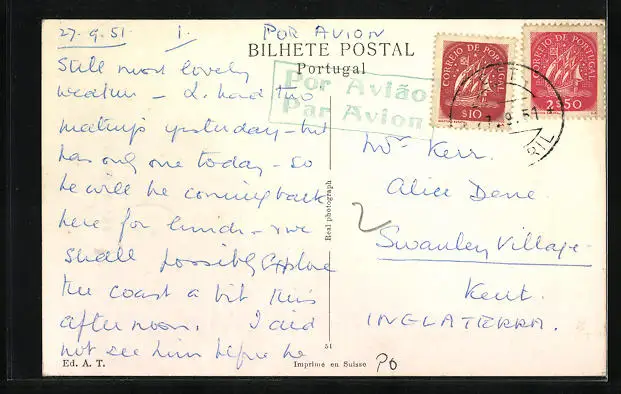 27.9.51. 1. POR AVION
BILHETE POSTAL
Portugal
Por Avião
Par Avion
CORREIO DE PORTUGAL
$10
CORREIO DE PORTUGAL
2$50
Still most lovely
weather - L. had two
meetings yesterday - but
has only one today - so
he will be coming back
here for lunch - & we
shall possibly explore
the coast a bit this
afternoon. I did
not see him before he
Mrs Kerr.
Alice Dene
Swanley Village
Kent.
INGLATERRA.
Real photograph
51
Ed. A. T.
Imprimé en Suisse
PO